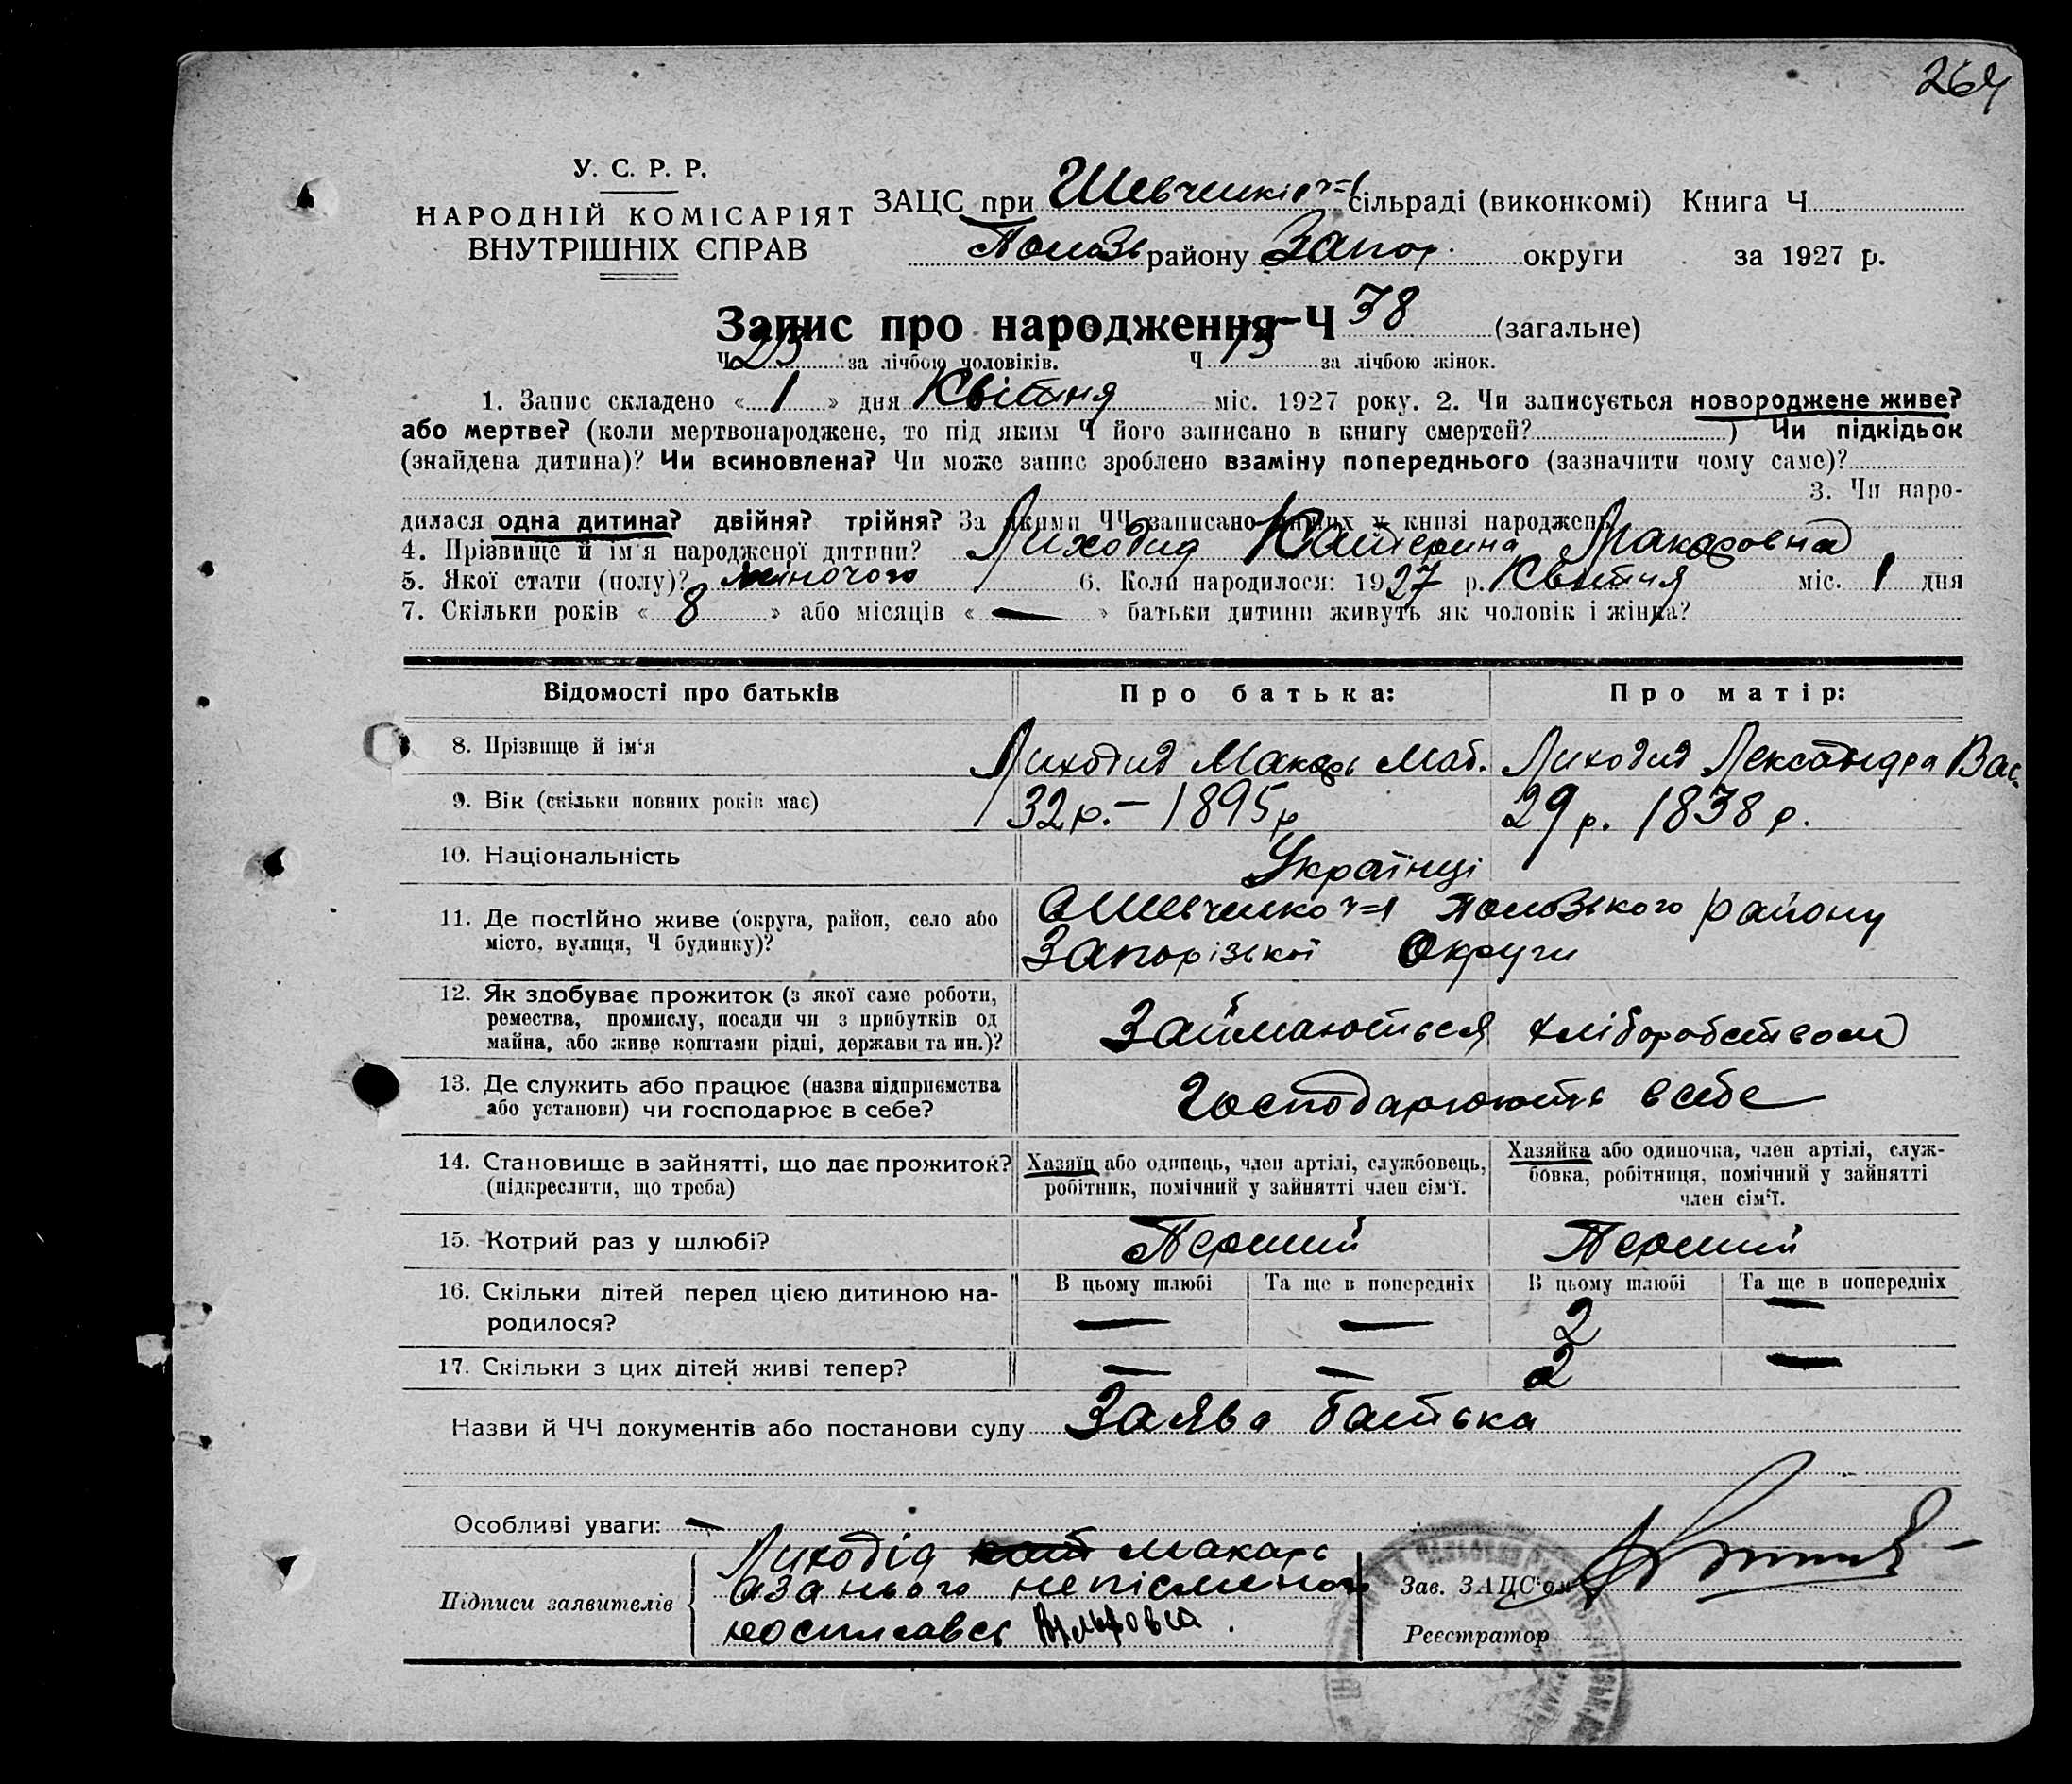 264
У. С. Р. Р.
НАРОДНІЙ КОМІСАРІЯТ
ВНУТРІШНІХ СПРАВ
ЗАЦС при Шевченків=1 сільраді (виконкомі) Книга Ч
району Запор. округи за 1927 р.
Запис про народження Ч 38 (загальне)
Ч 23 за лічбою чоловіків. Ч 15 за лічбою жінок.
1. Запис складено « 1 » дня Квітня міс. 1927 року. 2. Чи записується новороджене живе?
або мертве? (коли мертвонароджене, то під яким Ч його записано в книгу смертей? ) Чи підкідьок
(знайдена дитина)? Чи всиновлена? Чи може запис зроблено взаміну попереднього (зазначити чому саме)?
3. Чи наро-
дилася одна дитина? двійня? трійня? За якими ЧЧ записано инших у книзі народжень
4. Прізвище й ім'я народженої дитини? Лиходид Катерина Макаровна
5. Якої стати (полу)? жіночого 6. Коли народилося: 1927 р. Квітня міс. 1 дня
7. Скільки років « 8 » або місяців « — » батьки дитини живуть як чоловік і жінка?
Відомості про батьків Про батька: Про матір:
8. Прізвище й ім'я Лиходид Макарь Мат. Лиходид Лександра Вас.
9. Вік (скільки повних років має) 32 р. – 1895 р 29 р. 1838 р.
10. Національність Українці
11. Де постійно живе (округа, район, село або
місто, вулиця, Ч будинку)?
Шевченко ч=1 Пологського району
Запорізької Округи
12. Як здобуває прожиток (з якої само роботи,
ремества, промислу, посади чи з прибутків од
майна, або живе коштами рідні, держави та ин.)?
Займаються хліборобством
13. Де служить або працює (назва підприємства
або установи) чи господарює в себе?
Господарюють в себе
14. Становище в зайнятті, що дає прожиток?
(підкреслити, що треба)
Хазяїн або одинець, член артілі, службовець,
робітник, помічний у зайнятті член сім'ї.
Хазяйка або одиночка, член артілі, служ-
бовка, робітниця, помічний у зайнятті
член сім'ї.
15. Котрий раз у шлюбі? Перший Перший
16. Скільки дітей перед цією дитиною на-
родилося?
В цьому шлюбі Та ще в попередніх В цьому шлюбі Та ще в попередніх
— — 2 —
17. Скільки з цих дітей живі тепер? — — 2 —
Назви й ЧЧ документів або постанови суду Заява батька
Особливі уваги: —
Підписи заявителів
Лиходід Макарь
а за нього непісменого
Зав. ЗАЦС'ом
Реєстратор